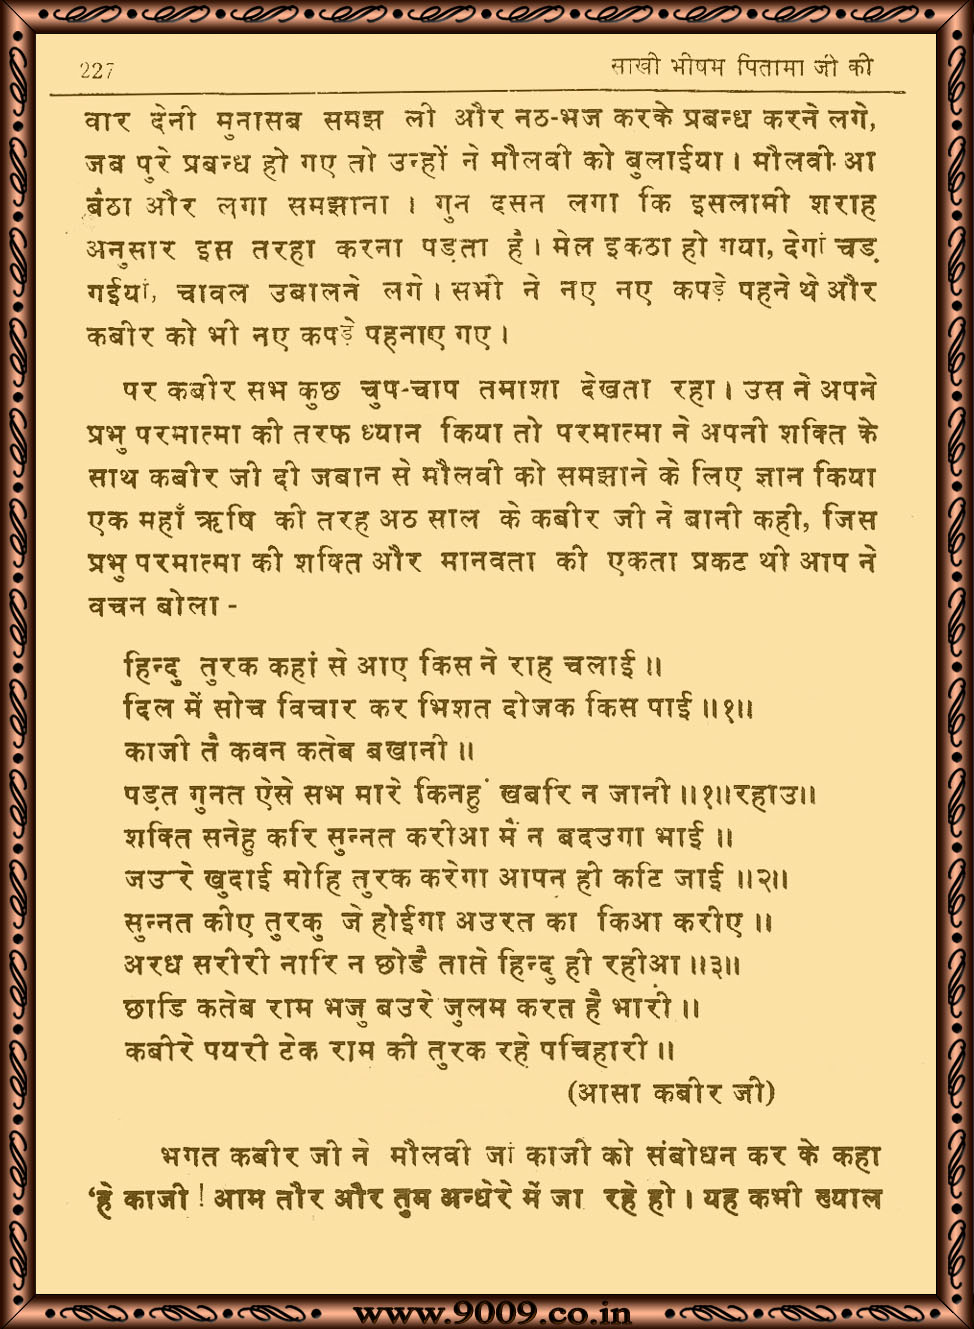 227
साखी भीषम पितामा जी की
वार देनी मुनासब समझ ली और नठ-भज करके प्रबन्ध करने लगे,
जब पुरे प्रबन्ध हो गए तो उन्हों ने मौलवी को बुलाईया। मौलवी आ
बैठा और लगा समझाना । गुन दसन लगा कि इसलामी शराह
अनुसार इस तरहा करना पड़ता है। मेल इकठा हो गया, देगां चड़
गईयां, चावल उबालने लगे। सभी ने नए नए कपड़े पहने थे और
कबीर को भी नए कपड़े पहनाए गए।
पर कबीर सभ कुछ चुप-चाप तमाशा देखता रहा। उस ने अपने
प्रभु परमात्मा की तरफ ध्यान किया तो परमात्मा ने अपनी शक्ति के
साथ कबीर जी दी जबान से मौलवी को समझाने के लिए ज्ञान किया
एक महाँ ऋषि की तरह अठ साल के कबीर जी ने बानी कही, जिस
प्रभु परमात्मा की शक्ति और मानवता की एकता प्रकट थी आप ने
वचन बोला -
हिन्दु तुरक कहां से आए किस ने राह चलाई॥
दिल में सोच विचार कर भिशत दोजक किस पाई॥१॥
काजी तै कवन कतेब बखानी॥
पड़त गुनत ऐसे सभ मारे किनहुं खबरि न जानी॥१॥रहाउ॥
शक्ति सनेहु करि सुन्नत करीआ मैं न बदउगा भाई॥
जउ रे खुदाई मोहि तुरक करेगा आपन ही कटि जाई॥२॥
सुन्नत कीए तुरकु जे होईगा अउरत का किआ करीए॥
अरध सरीरी नारि न छोडै ताते हिन्दु ही रहीआ॥३॥
छाडि कतेब राम भजु बउरे जुलम करत है भारी॥
कबीरे पयरी टेक राम की तुरक रहे पचिहारी॥
(आसा कबीर जी)
भगत कबीर जी ने मौलवी जां काजी को संबोधन कर के कहा
‘हे काजी! आम तौर और तुम अन्धेरे में जा रहे हो। यह कभी ख्याल
www.9009.co.in